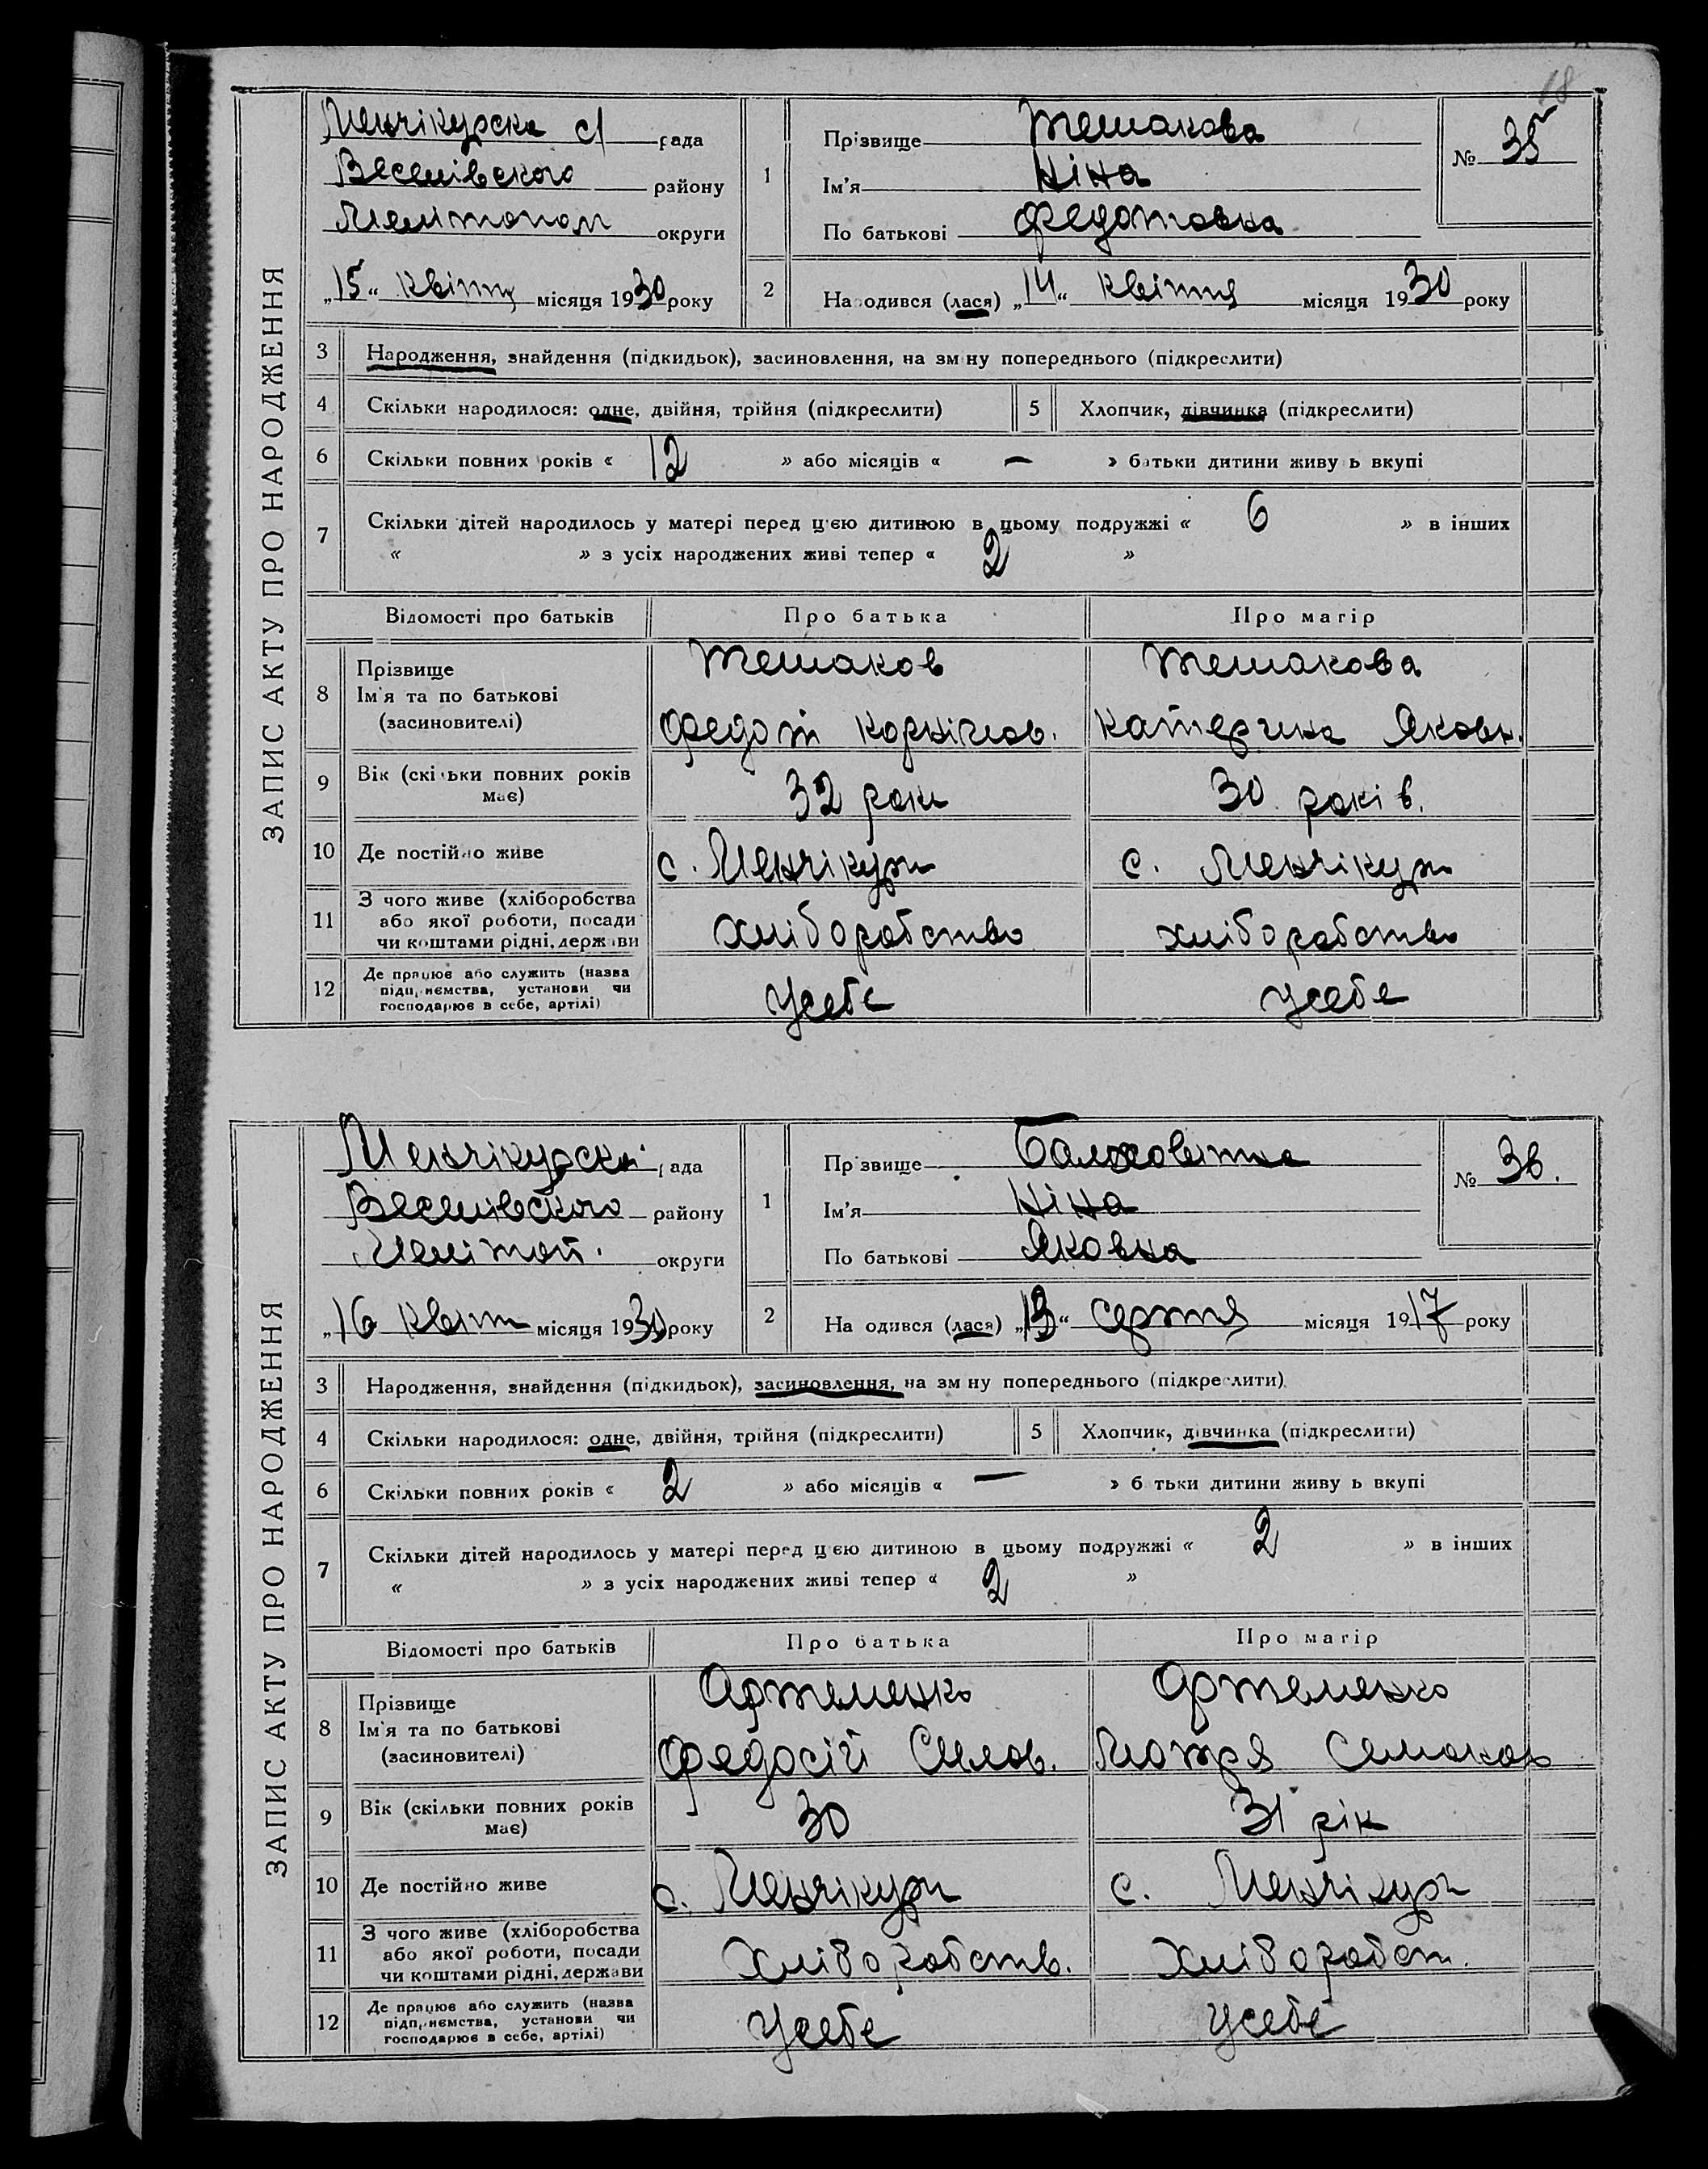 18
ЗАПИС АКТУ ПРО НАРОДЖЕННЯ
Менчікурска с/ рада
Веселівского району
Мелітопол округи
„15“ квітня місяця 1930 року
1
Прізвище Тешакова
Ім'я Ніна
По батькові Федотовна
№ 35
2
Народився (лася) „14“ квітня місяця 1930 року
3 Народження, знайдення (підкидьок), засиновлення, на зміну попереднього (підкреслити)
4 Скільки народилося: одне, двійня, трійня (підкреслити) 5 Хлопчик, дівчинка (підкреслити)
6 Скільки повних років « 12 » або місяців « — » батьки дитини живуть вкупі
7 Скільки дітей народилось у матері перед цією дитиною в цьому подружжі « 6 » в інших
« » з усіх народжених живі тепер « 2 »
Відомості про батьків Про батька Про матір
8 Прізвище Тешаков Тешакова
Ім'я та по батькові
(засиновителі) Федот Корнійов. Катерина Яковн.
9 Вік (скільки повних років має) 32 роки 30 років.
10 Де постійно живе с. Менчікури с. Менчікури
11 З чого живе (хліборобства
або якої роботи, посади
чи коштами рідні, держави хліборобство хліборобство
12 Де працює або служить (назва
підприємства, установи чи
господарює в себе, артілі) Усебе Усебе
ЗАПИС АКТУ ПРО НАРОДЖЕННЯ
Менчікурска рада
Веселівского району
Мелітоп. округи
„16 квітн місяця 1930 року
1
Прізвище
Ім'я Ніна
По батькові Яковна
№ 36.
2
Народився (лася) „13“ серпня місяця 1917 року
3 Народження, знайдення (підкидьок), засиновлення, на зміну попереднього (підкреслити)
4 Скільки народилося: одне, двійня, трійня (підкреслити) 5 Хлопчик, дівчинка (підкреслити)
6 Скільки повних років « 2 » або місяців « — » батьки дитини живуть вкупі
7 Скільки дітей народилось у матері перед цією дитиною в цьому подружжі « 2 » в інших
« » з усіх народжених живі тепер « 2 »
Відомості про батьків Про батька Про матір
8 Прізвище Артеменко Артеменко
Ім'я та по батькові
(засиновителі) Федосій Мотря
9 Вік (скільки повних років має) 30 31 рік
10 Де постійно живе с. Менчікури с. Менчікури
11 З чого живе (хліборобства
або якої роботи, посади
чи коштами рідні, держави Хліборобств. Хліборобст.
12 Де працює або служить (назва
підприємства, установи чи
господарює в себе, артілі) Усебе Усебе